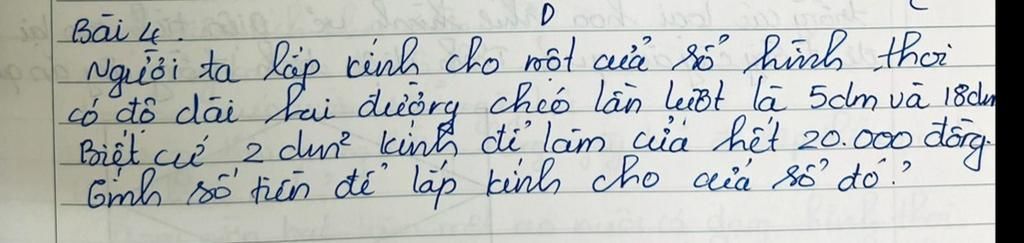 D
Bài 4.
Người ta lắp kính cho một cửa sổ hình thoi
có độ dài hai đường chéo lần lượt là 5dm và 18dm
Biết cứ 2 dm² kính để làm cửa hết 20.000 đồng.
Tính số tiền để lắp kính cho cửa sổ đó?